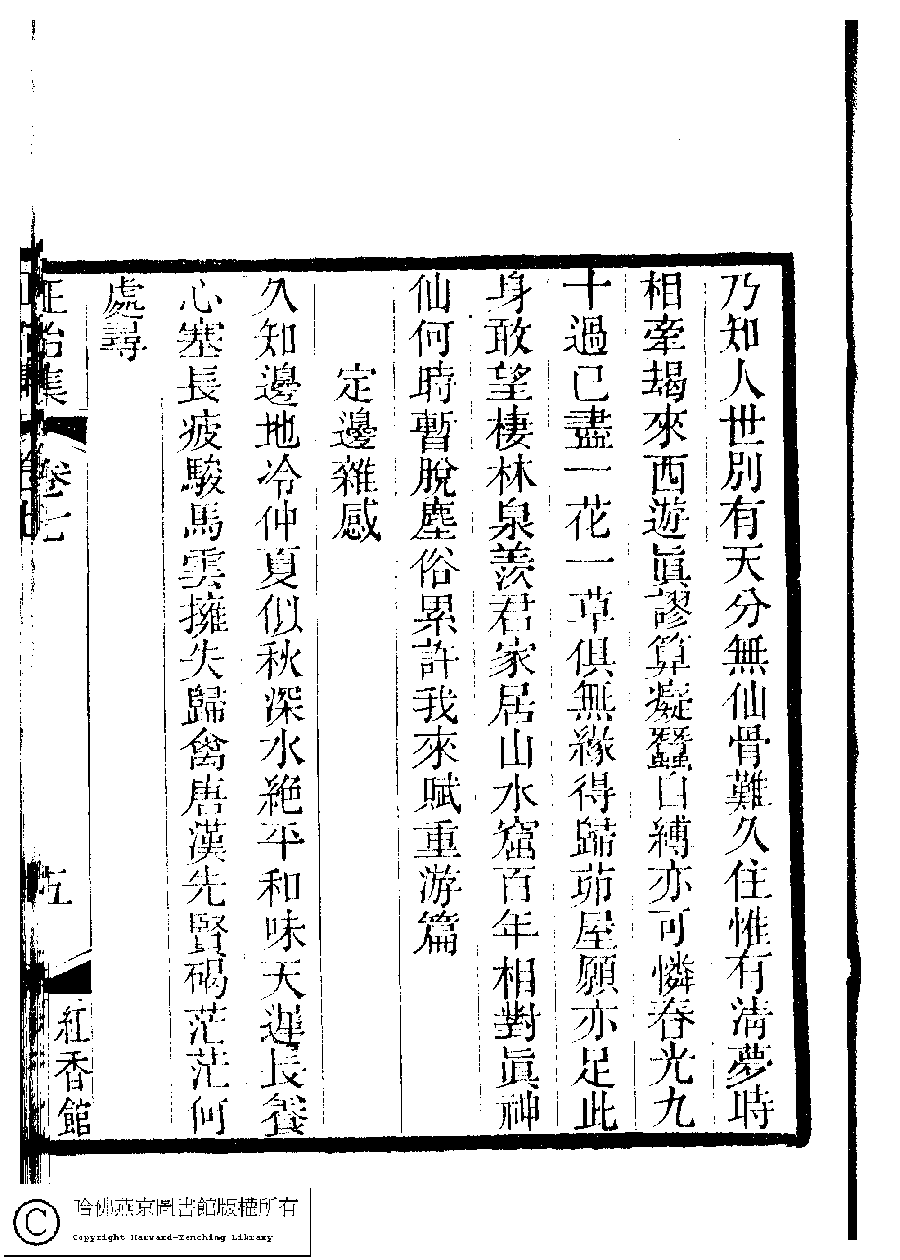 乃知人世別有天分無仙骨難久住惟有清夢時
相牽朅來西遊眞謬算癡蠶自縛亦可憐春光九
十過已盡一花一草俱無緣得歸茆屋願亦足此
身敢望棲林泉羨君家居山水窟百年相對眞神
仙何時暫脫塵俗累許我來賦重游篇
定邊雜感
久知邊地冷仲夏似秋深水絶平和味天遲長養
心塞長疲駿馬雲擁失歸禽唐漢先賢碣茫茫何
處尋
正始集
卷七
五
紅香館
哈佛燕京圖書館版權所有
Copyright Harvard-Yenching Library